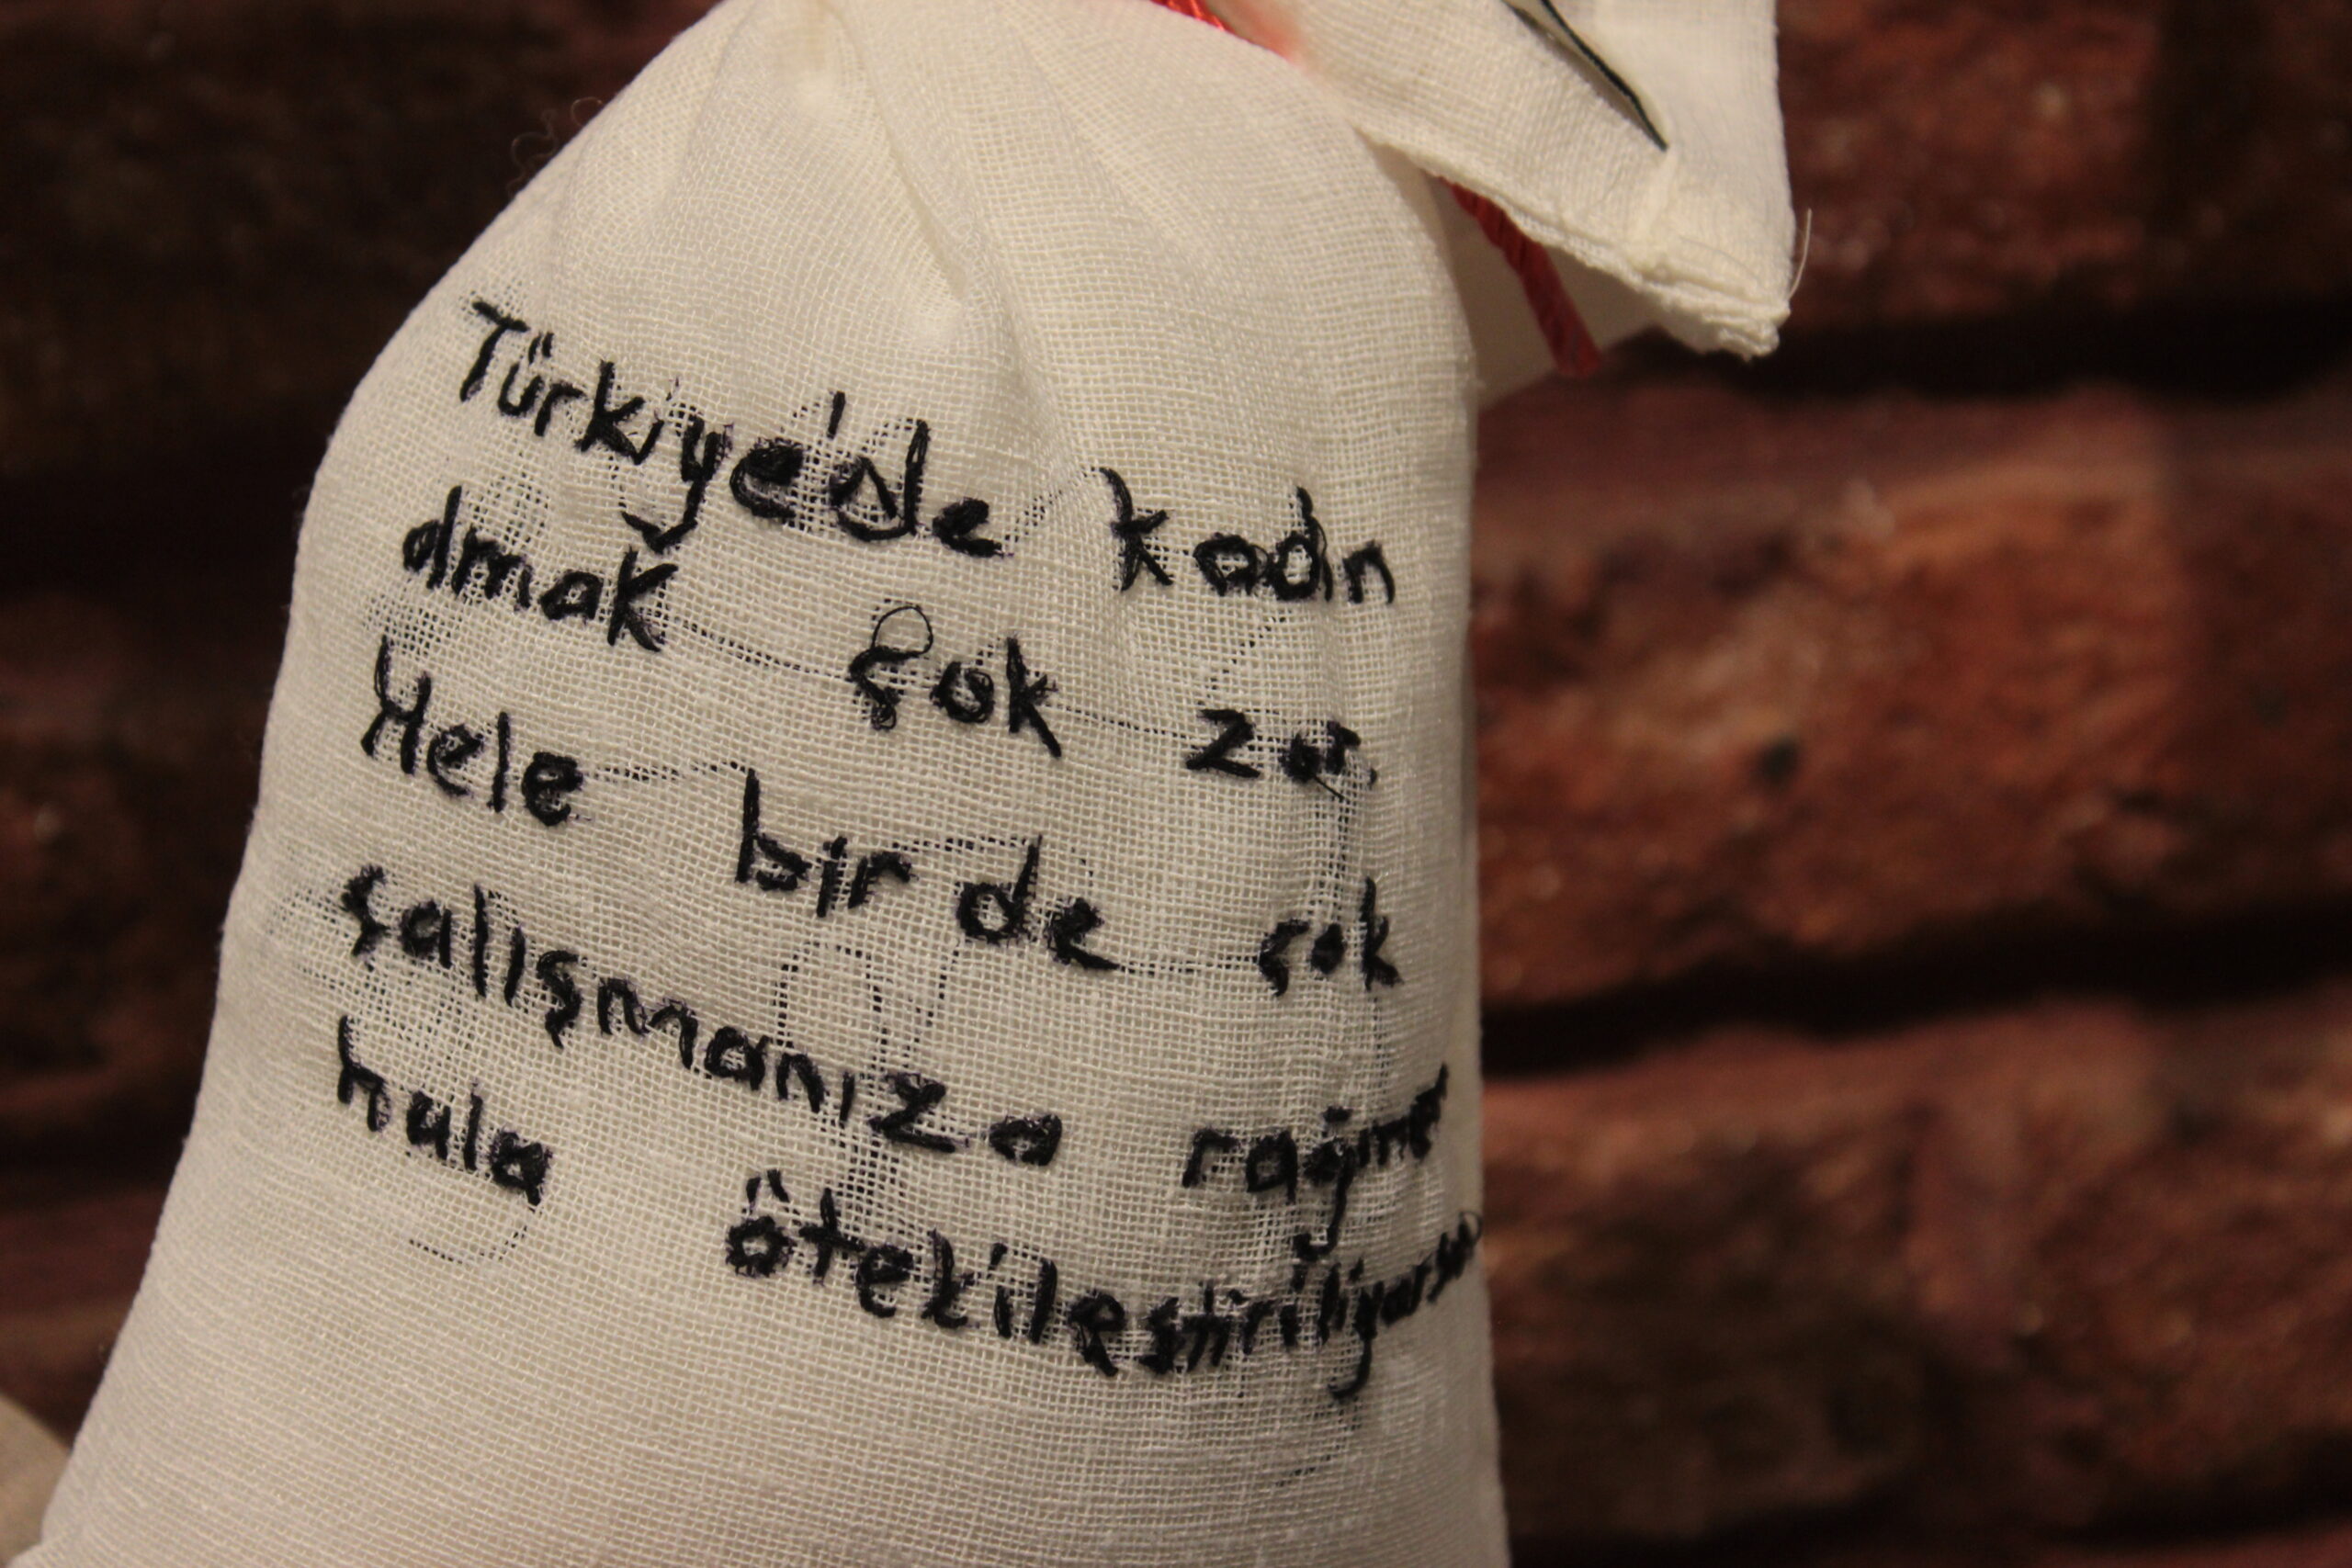 Türkiye'de kadın
olmak çok zor.
Hele bir de çok
çalışmanıza rağmen
hala ötekileştiriliyorsa